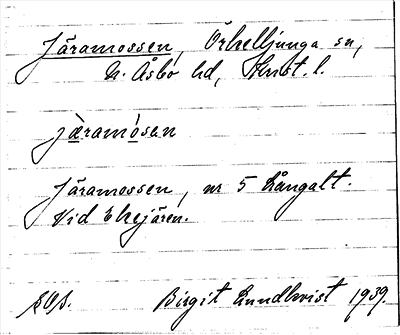 Järamossen, Örkelljunga sn,
N. Åsbo hd, Krist. l.
jæ̀ramósan
Järamossen, nr 5 Långalt.
Vid Ekejären.
Birgit Lundkvist 1939.